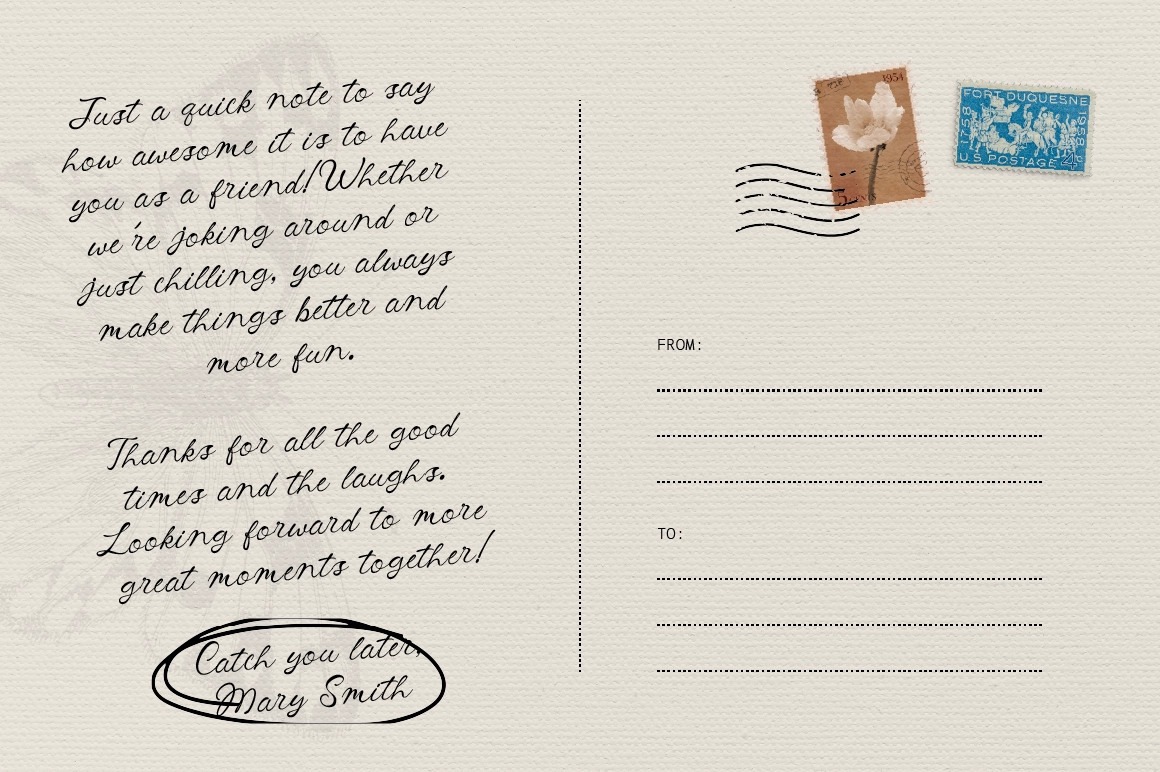 Just a quick note to say
how awesome it is to have
you as a friend! Whether
we're joking around or
just chilling, you always
make things better and
more fun.
Thanks for all the good
times and the laughs.
Looking forward to more
great moments together!
Catch you later,
Mary Smith
1954
5
FORT DUQUESNE
1758
1958
U.S. POSTAGE 4¢
FROM:
TO: